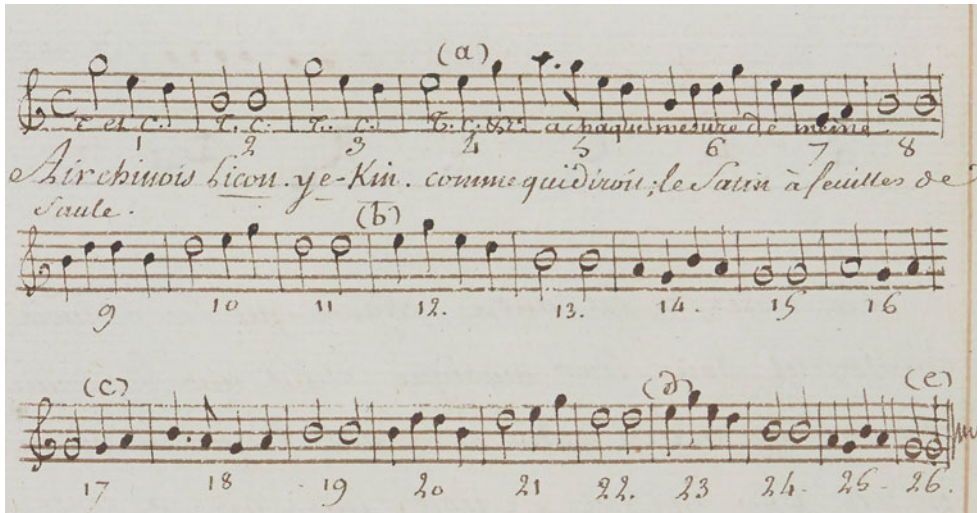 (a)
C
T. et C. T. C. T. C. T. C. &r. a chaque mesure de meme
1 2 3 4 5 6 7 8
Air chinois licou. ye-Kin. comme qui diroit; le Satin à feuilles de
Saule.
(b)
9 10 11 12. 13. 14. 15 16
(c) (d) (e)
17 18 19 20 21 22. 23 24. 25. 26.